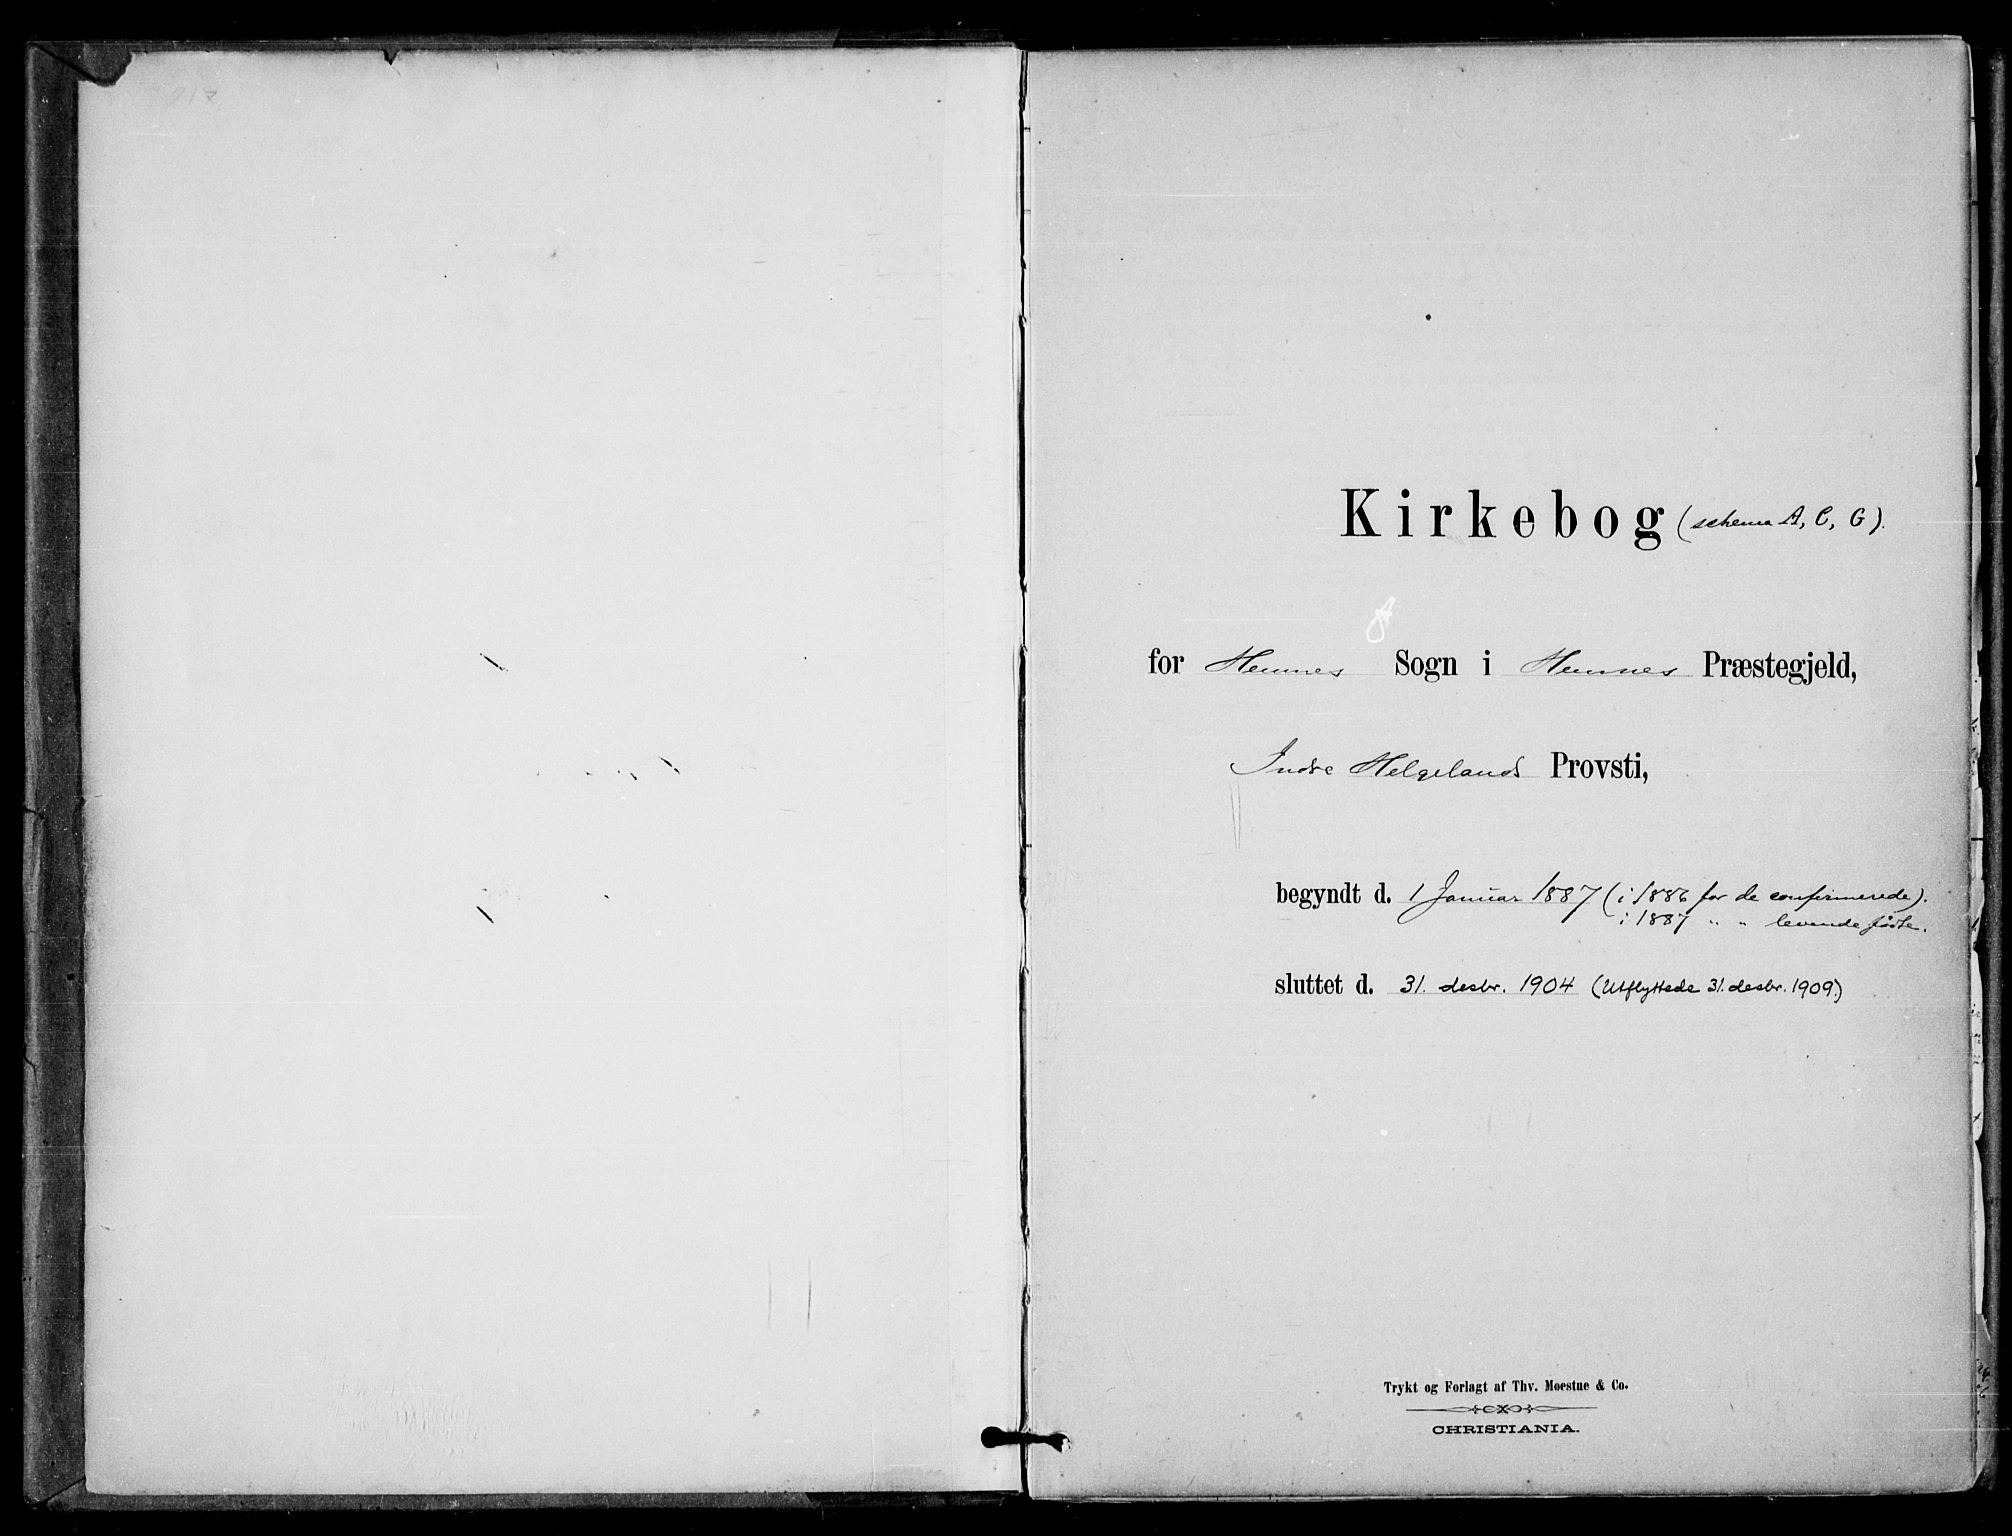 Kirkebog (schema A, C, G).
for Hemnes Sogn i Hemnes Præstegjeld,
Indre Helgelands Provsti,
begyndt d. 1 Januar 1887 (i 1886 for de confirmerede).
i 1887 " " levende fødte.
sluttet d. 31. desbr. 1904 (Utflyttede 31. desbr. 1909.)
Trykt og Forlagt af Thv. Moestue & Co.
CHRISTIANIA.